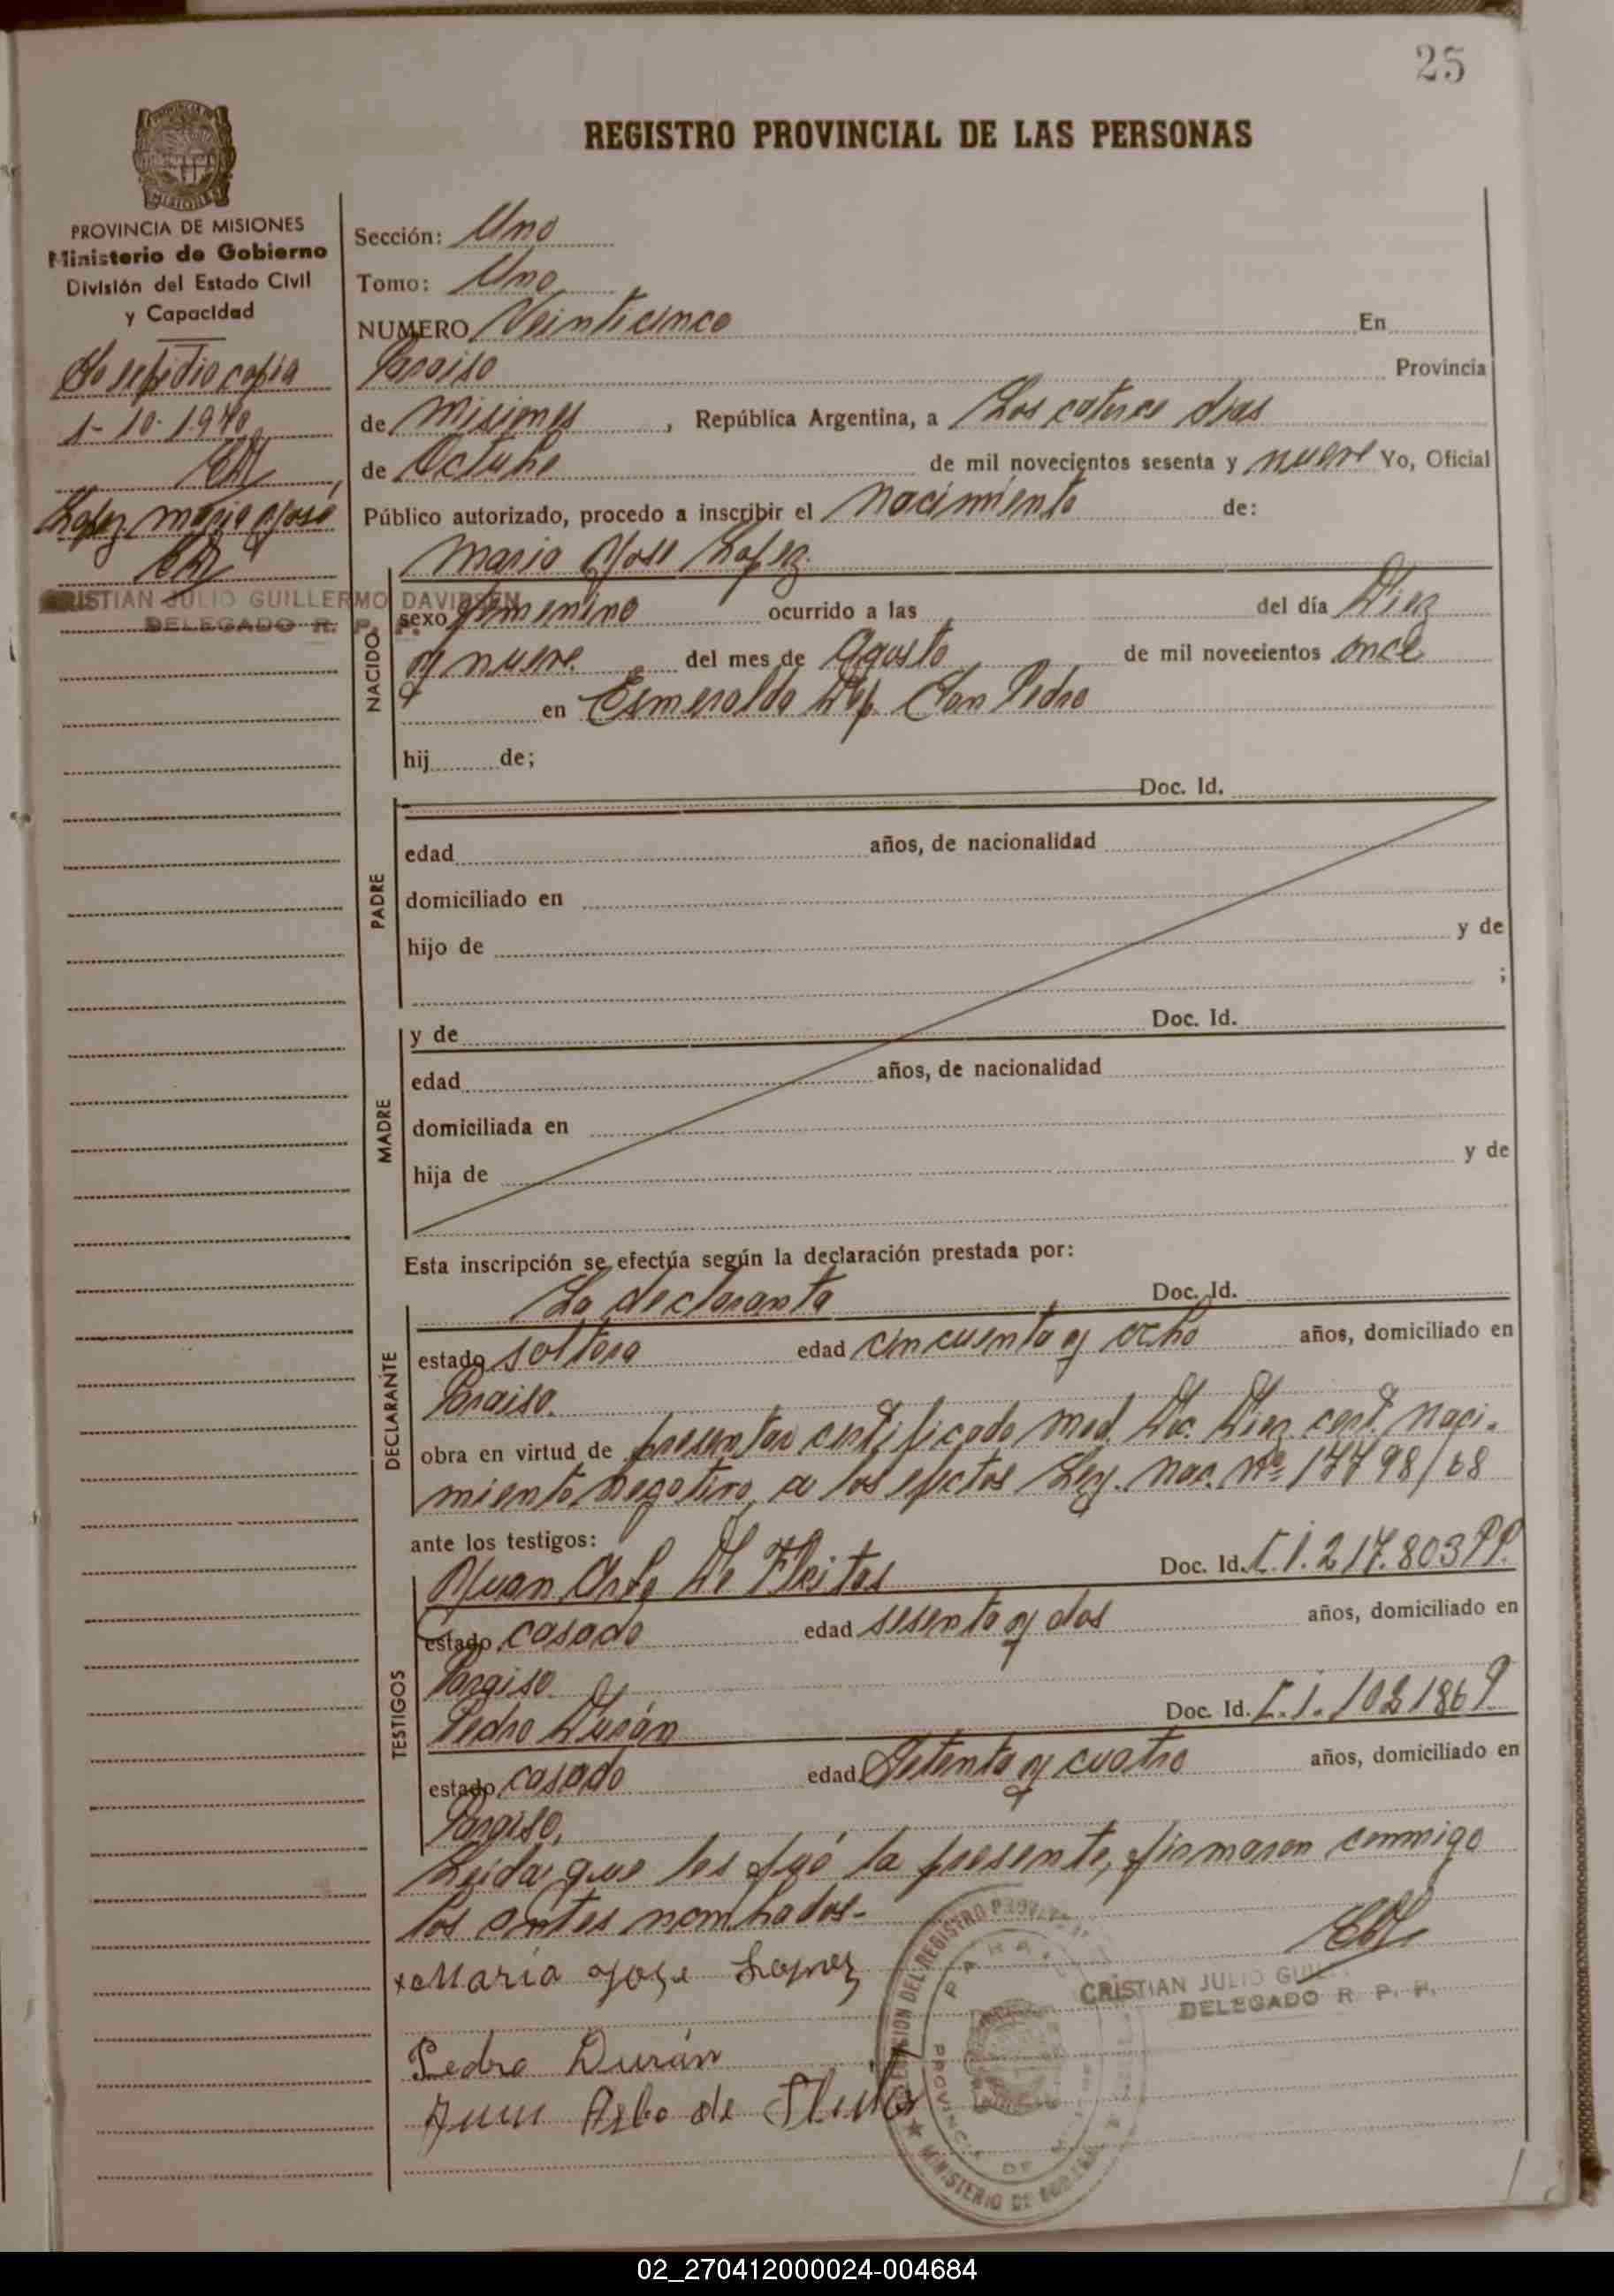 25
REGISTRO PROVINCIAL DE LAS PERSONAS
PROVINCIA DE MISIONES
Ministerio de Gobierno
División del Estado Civil
y Capacidad
Se expidio copia
1-10-1970
Lopez Maria Jose
CRISTIAN JULIO GUILLERMO DAVIDSEN
DELEGADO R. P. P.
Sección: Uno
Tomo: Uno
NUMERO Veinticinco En
Paraiso Provincia
de Misiones, República Argentina, a Los catorce dias
de Octubre de mil novecientos sesenta y nueve Yo, Oficial
Público autorizado, procedo a inscribir el Nacimiento de:
Maria Jose Lopez.
NACIDO
sexo femenino ocurrido a las del día Diez
y nueve del mes de Agosto de mil novecientos once
en Esmeralda Dep. San Pedro
hij de;
PADRE
Doc. Id.
edad años, de nacionalidad
domiciliado en
hijo de y de
;
MADRE
y de Doc. Id.
edad años, de nacionalidad
domiciliada en
hija de y de
Esta inscripción se efectúa según la declaración prestada por:
DECLARANTE
La declaranta Doc. Id.
estado soltera edad cincuenta y ocho años, domiciliado en
Paraiso.
obra en virtud de presentar certificado med. Doc. Diez cert. naci-
miento negativo, a los efectos Ley. nac. Nº 17798/68
ante los testigos:
TESTIGOS
Juan Arbo De Fleitas Doc. Id. C.i. 217.803 PP.
estado casado edad sesenta y dos años, domiciliado en
Paraiso.
Pedro Durán Doc. Id. C.i. 1021869
estado casado edad Setenta y cuatro años, domiciliado en
Paraiso.
Leida que les fué la presente, firmaron conmigo
los antes nombrados-
x Maria Jose Lopez
CRISTIAN JULIO GUIL
DELEGADO R. P. P.
Pedro Durán
Juan Arbo de
DEL REGISTRO PROVIN
PARA
PROVINCIA DE
MINISTERIO DE
02_270412000024-004684